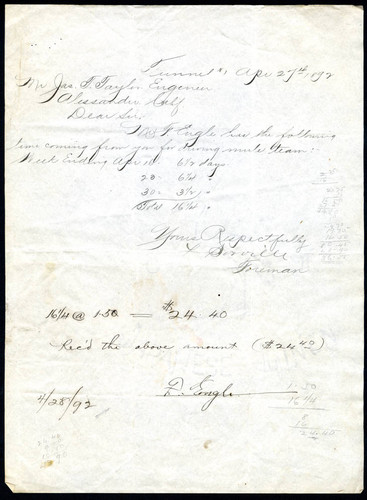 Tunnel #1 Apr 27th 1892
Mr Jas. T. Taylor Engineer
Alessandro Calf
Dear Sir
Mr F Engle has the following
time coming from you for driving mule team:-
Week Ending Apr 16 6 1/2 days
23 6 1/4 "
30 3 1/2 "
Total 16 1/4 "
Yours Respectfully
Foreman
16 1/4 @ 1.50 = $24.40
Rec'd the above amount ($24.40)
4/28/92
F. Engle
1.50
16 1/4
24.40